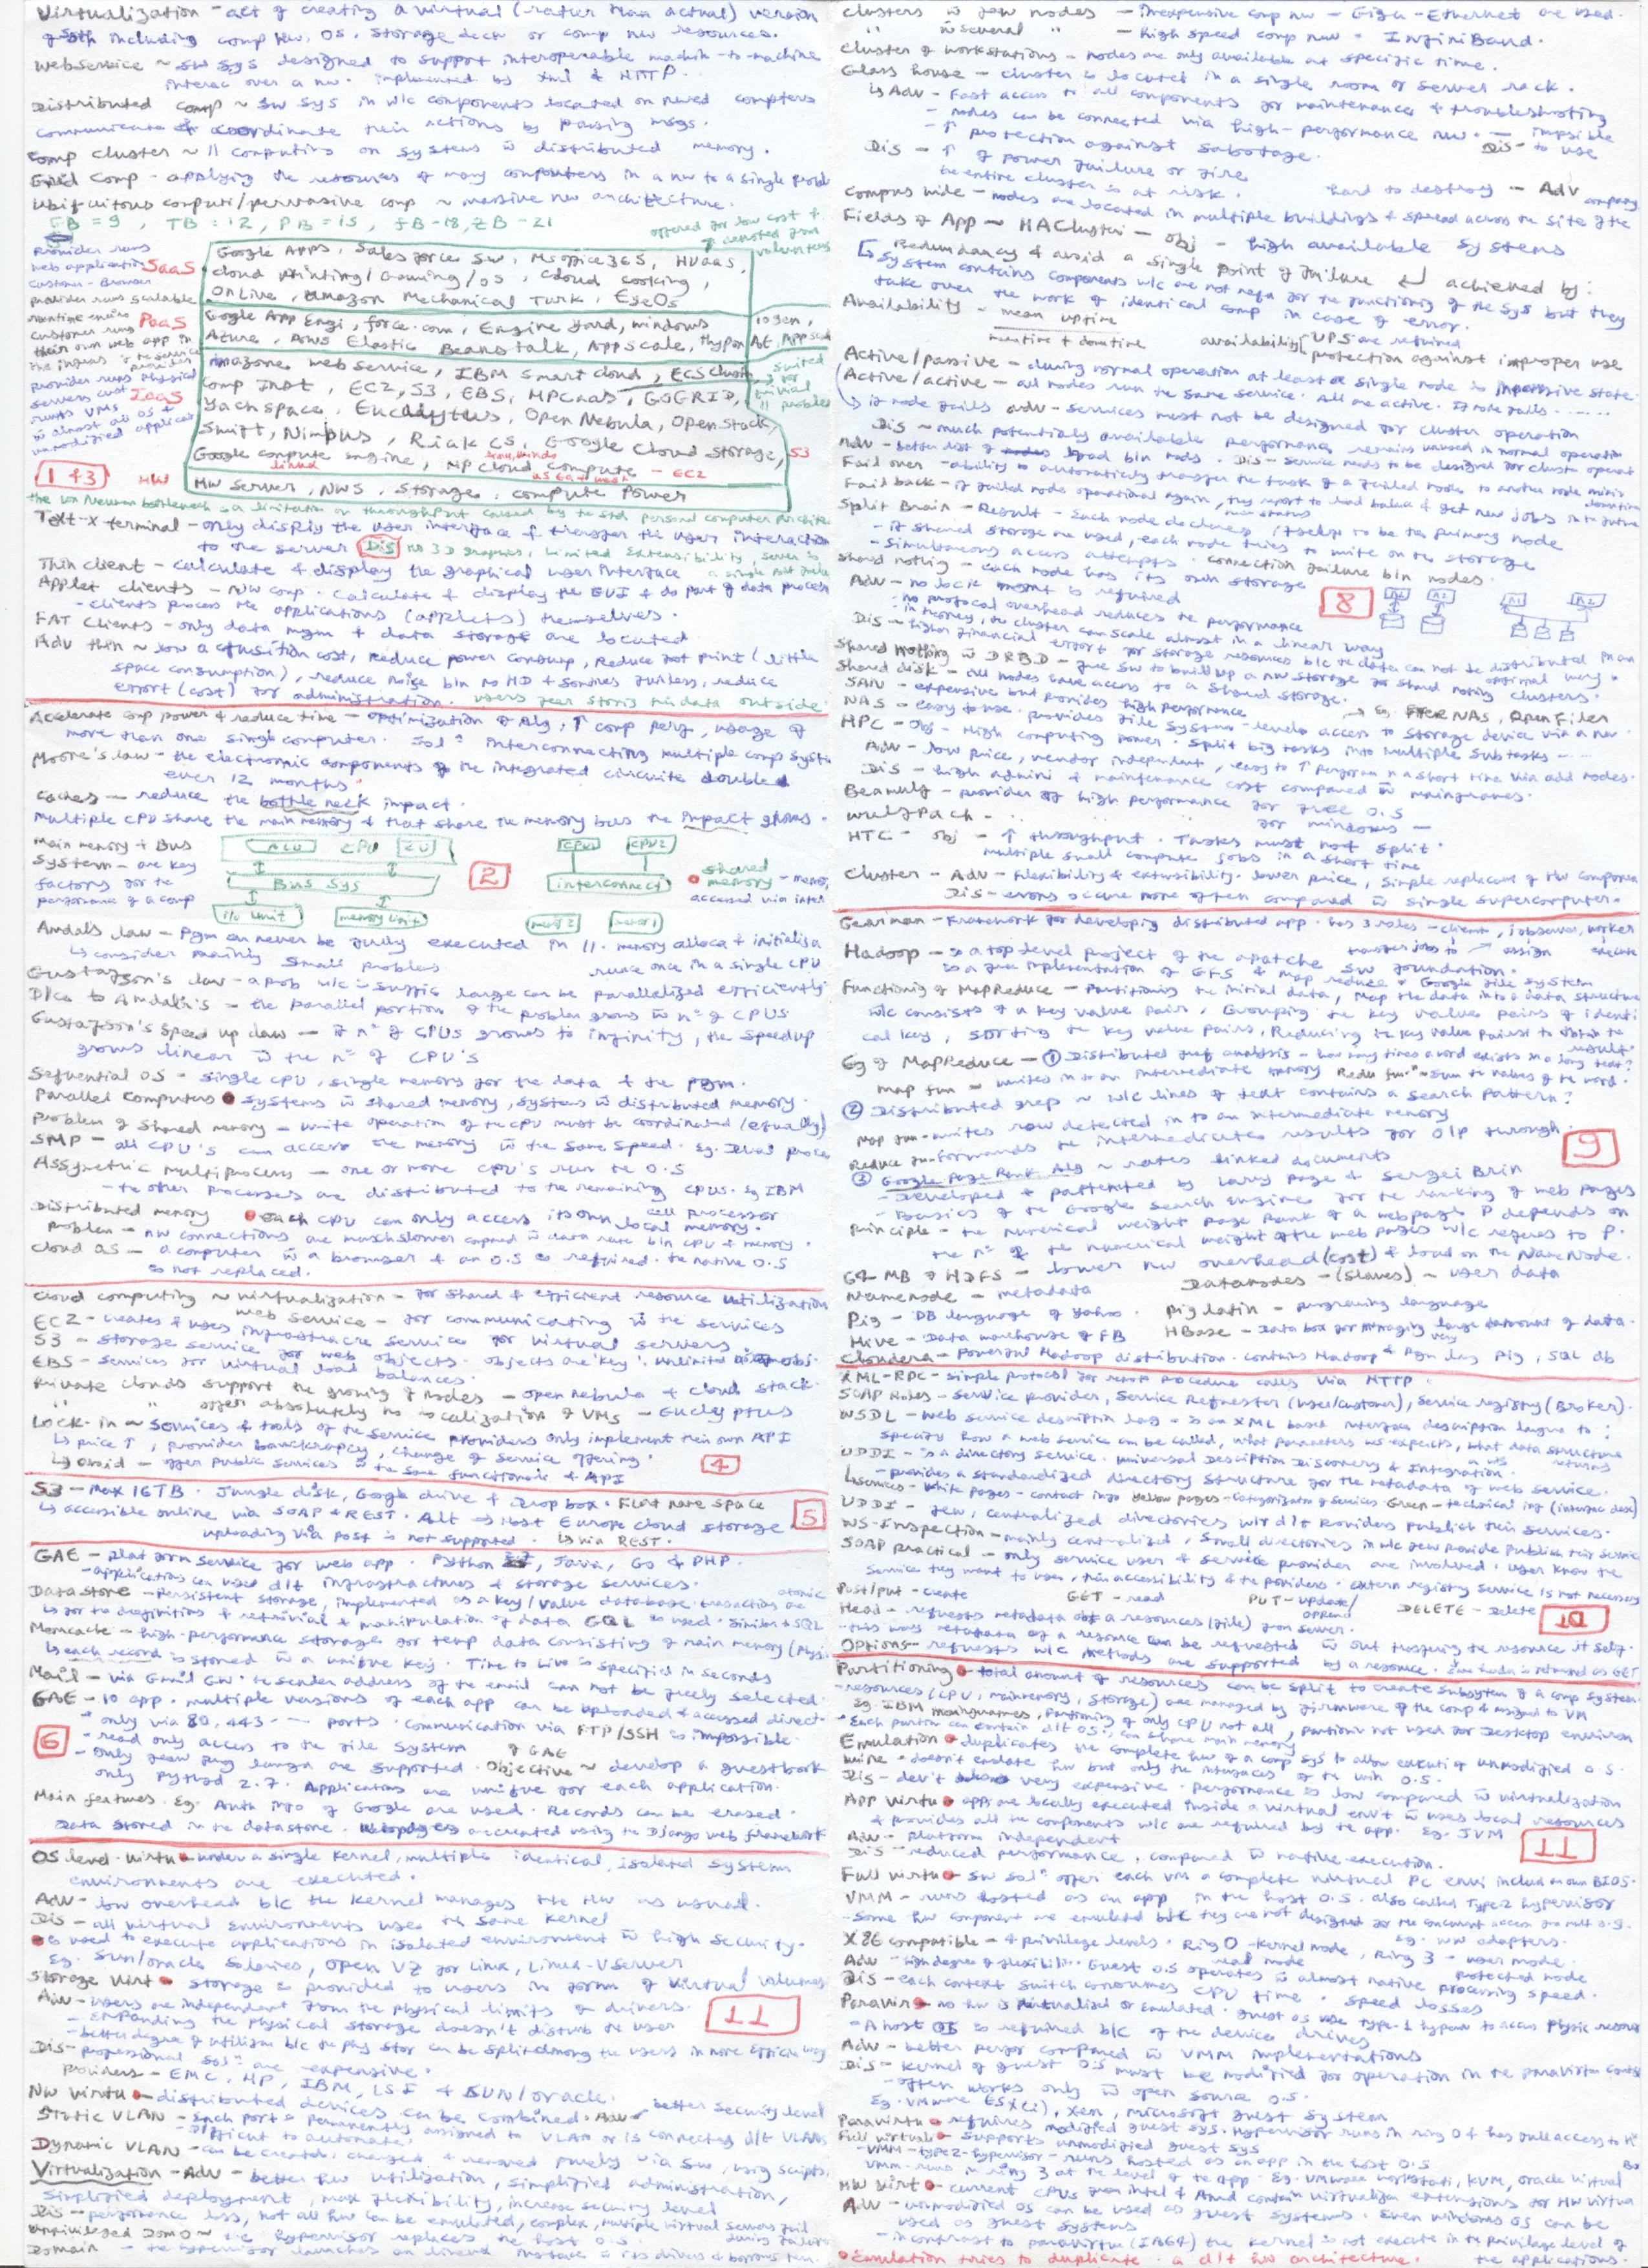 Virtualization - act of creating a virtual (rather than actual) version
of sth including comp hw, OS, storage device or comp nw resources.
Webservice ~ sw sys designed to support interoperable machin-to-machine
interac over a nw. implemented by xml & HTTP.
Distributed comp ~ sw sys in w/c components located on nwed compters
communicate & coordinate their actions by passing msgs.
Comp cluster ~ 11 computing on systems w̄ distributed memory.
Grid Comp - applying the resources of many computers in a nw to a single probl
Ubiquitous computi/pervasive comp ~ massive new architecture.
EB = 9, TB = 12, PB = 15, EB-18, ZB-21
offered for low cost &
denoted from
volunteers
Provider runs
web application SaaS
Customer - Browser
Google Apps, Sales force sw, Msoffice365, HuaaS,
cloud printing/Gaming/OS, cloud cooking,
OnLive, Amazon Mechanical Turk, EyeOS
provider runs scalable
runtime enviro PaaS
customer runs
their own web app in
Google App Engi, force.com, Engine Yard, windows
Azure, AWS Elastic Beanstalk, Appscale, typhon AE, Appscale
provider runs Physical
servers cust IaaS
runs VMs
w̄ almost all OS &
unmodified applicat
Amazone web service, IBM smart cloud, EC2 Cluster
Comp Inst, EC2, S3, EBS, HPCaaS, GOGRID,
Rackspace, Eucalyptus, Open Nebula, OpenStack,
Swift, Nimbus, Riak CS, Google Cloud Storage, S3
Google compute engine, HP Cloud compute - EC2
1 & 3 HW
HW Server, NWS, Storage, compute Power
the Von Neuman bottleneck is a limitation on throughput caused by the std personal computer archite
Text-X terminal - only display the user interface & transfer the user interaction
to the server Dis no 3D graphics, limited Extensibility, server is
a single point failure
Thin client - calculate & display the graphical user interface
Applet clients - NW comp. calculate & display the GUI & do part of data process
- clients process the applications (applets) themselves.
FAT Clients - only data mgm & data storage are located.
Adv thin ~ low acquisition cost, reduce power consump, reduce foot print (little
space consumption), reduce noise b/n no HD & sometimes fanless, reduce
effort (cost) for administration. users fear storing their data outside
Accelerate comp power & reduce time - optimization of Alg, ↑ comp perf, usage of
more than one single computer. Solⁿ interconnecting multiple comp syste
Moore's law - the electronic components of the integrated circuite double
ever 12 months
Caches - reduce the bottle neck impact.
Multiple CPU share the main memory & that share the memory bus the impact grows.
Main memory & Bus
system - are key
factors for the
performance of a comp
ALU CPU CU
Bus Sys
I/O Unit memory Unit
2
CPU1 CPU2
interconnect
mem2 mem1
shared
memory - memory
accessed via inter
Amdals law - Pgm can never be fully executed in 11. memory alloca & initializa
↳ consider mainly small problem runs once in a single CPU
Gustafson's law - a prob w/c is suffic large can be parallelized efficiently
Dfce to Amdahl's - the parallel portion of the problem grows w̄ nº of CPUs
Gustafson's Speed up law - if nº of CPUs grows to infinity, the speedup
grows linear w̄ the nº of CPU's
Sequential OS - single CPU, single memory for the data & the pgm.
Parallel Computers • systems w̄ shared memory, systems w̄ distributed memory.
Problem of Shared memory - write operation of the CPU must be coordinated (equally)
SMP - all CPU's can access the memory w̄ the same speed. Eg. Dual proces
Assymetric Multiprocess - one or more CPU's run the O.S
- the other processes are distributed to the remaining CPUs. Eg IBM
cell processor
Distributed memory • each CPU can only access its own local memory.
problem - nw connections are much slower compared w̄ data rate b/n CPU & memory.
Cloud OS - a computer w̄ a browser & an O.S is required. the native O.S
is not replaced.
Cloud computing ~ virtualization - for shared & efficient resource utilization
web service - for communicating w̄ the services
EC2 - creates & uses infrastructure service for virtual servers
S3 - storage service for web objects. objects are 'key'. Unlimited nº of obj.
EBS - services for virtual load balances.
Private clouds support the growing of nodes - open nebula & cloud stack.
" " offer absolutely no scalization of VMs - Eucalyptus
Lock-in ~ services & tools of the service providers only implement their own API
↳ price ↑, provider bankcrupcy, change of service offering.
↳ avoid - offer public services w̄ the same functionality & API
4
S3 - max 16TB. Jungle disk, Google drive & Drop box. Flat name space
↳ accessible online via SOAP & REST. Alt → Host Europe cloud storage
uploading via post is not supported. ↳ via REST.
5
GAE - platform service for web app. Python, Java, Go & PHP.
- applications can used d/t infrastructures & storage services.
Datastore - persistent storage, implemented as a key/value database. transactions are atomic
↳ for the definitions & retrivial & manipulation of data GQL is used. similar to SQL
Memcache - high-performance storage for temp data consisting of main memory (Phys
↳ each record is stored w̄ a unique key. Time to live is specified in seconds
Mail - via Gmail GW. the sender address of the email can not be freely selected.
GAE - 10 app. multiple versions of each app can be uploaded & accessed direct.
* only via 80, 443 ports. communication via FTP/SSH is impossible.
- read only access to the file system
6
- only few prog langu are supported. Objective of GAE ~ develop a guestbook
only python 2.7. Applications are unique for each application.
Main features. Eg. Auth info of Google are used. Records can be erased.
Data stored in the datastore. Webpages are created using the Django web framework
OS level-virtu • under a single Kernel, multiple identical, isolated system
environments are executed.
Adv - low overhead b/c the kernel manages the HW as usual.
Dis - all virtual environments uses the same kernel
• is used to execute applications in isolated environment w̄ high security.
Eg. Sun/oracle Solaries, open VZ for Linux, Linux-Vserver
Storage Virt • storage is provided to users in form of virtual volumes
Adv - users are independent from the physical limits of drivers.
- Expanding the physical storage doesn't disturb the user
11
- better degree of utilizm b/c the phy stor can be split among the users in more efficie way
Dis - professional Solⁿ are expensive.
Providers - EMC, HP, IBM, LSI & SUN/oracle.
NW virtu • distributed devices can be combined. Adv - better security level
Static VLAN - Each port is permanently assigned to VLAN or is connected d/t VLANs
- difficult to automate.
Dynamic VLAN - can be created, changed & removed purely via sw, using scripts.
Virtualization - Adv - better hw utilization, simplified administration,
simplified deployment, max flexibility, increase security level
Dis - performance loss, not all hw can be emulated, complex, multiple virtual servers fail
Unprivileged Dom0 ~ the hypervisor replaces the host O.S.
Domain - the hypervisor launches
Clusters w̄ few nodes - inexpensive comp nw - Giga-Ethernet are used.
" w̄ several " - high speed comp nw - InfiniBand.
Cluster of workstations - nodes are only available at specific time.
Glass house - cluster is located in a single room or server rack.
↳ Adv - Fast access to all components for maintenance & troubleshooting
- nodes can be connected via high-performance nw.
- ↑ protection against sabotage.
Dis - impsible to use
Dis - ↑ of power failure or fire
the entire cluster is at risk.
hard to destroy - Adv
Compus wide - nodes are located in multiple buildings & spread across the site of the company
Fields of App ~ HACluster - obj - high available systems
Redundancy & avoid a single point of failure ↵ achieved by:
↳ System contains components w/c are not requ for the functionig of the sys but they
take over the work of identical comp in case of error.
Availability - mean uptime
muptime & downtime
availability UPS are required
protection against improper use
Active/passive - during normal operation at least a single node is in passive state.
Active/active - all nodes run the same service. All are active. If node fails ......
if node fails adv - services must not be designed for cluster operation
Dis - much potentially available performance remains unused in normal operation
Adv - better dist of load b/n nods. Dis - service needs to be designed for cluste operat
Fail over - ability to automaticly transfer the task of a failed nodes to another node
Fail back - if failed node operational again, they report to load balance & get new jobs in the future
Split Brain - Result - Each node declares itself to be the primary node
- if shared storage are used, each node tries to write on the storage
- simultaneous access attempts. connection failure b/n nodes.
Shared nothing - each node has its own storage
Adv - no lock mgmt is required
8
- no protocol overhead reduces the performance
- in theory, the cluster can scale almost in a linear way
Dis - higher financial effort for storage resources b/c the data can not be distributed in an
optimal way.
Shared nothing w̄ DRBD - free sw to build up a nw storage for shared nothig clusters.
Shared disk - all nodes have access to a shared storage.
SAN - expensive but provides high performance
NAS - easy to use. provides file system-level access to storage device via a nw. → Eg. FreeNAS, OpenFiler
HPC - obj - High computing power. Split big tasks into multiple subtasks
Adv - low price, vendor independent, easy to ↑ perform in a short time via add nodes.
Dis - high admini & maintenance cost compared w̄ mainframes.
Beowulf - provider of high performance for free O.S
Wulfpack - .. for windows
HTC - obj - ↑ throughput. Tasks must not split.
multiple small compute jobs in a short time
Cluster - Adv - Flexibility & extensibility. lower price, simple replacem of HW component
Dis - errors occure more often compared w̄ single supercomputer.
Gearman - Framework for developing distributed app. has 3 roles - client, jobserver, worker
transfer jobs to assign execute
Hadoop - is a top level project of the Apatche sw foundation.
is a free implementation of GFS & map reduce & Google file system
Functionig of MapReduce - Partitioning the initial data, map the data into a data structure
w/c consists of a key value pair. Grouping the key values pairs of identi
cal key, sorting the key value pairs, Reducing the key value pairs to obtain the
result.
Eg of MapReduce - ① Distributed freq analysis - how many times a word exists in a long text?
map fun - writes in to an intermediate memory Redu fun - sum the values of the word.
② Distributed grep ~ w/c lines of text contains a search pattern?
Map fun - writes row detected in to an intermediate memory
Reduce fu - forwards the intermediate results for O/P through.
9
③ Google Page Rank Alg ~ rates linked documents
- Developed & patterited by Larry Page & Sergei Brin
- Basics of the Google search engines for the ranking of web pages
Principle - the numerical weight Page Rank of a webpage P depends on
the nº of the numerical weight of the web pages w/c referes to P.
64 MB of HDFS - lower nw overhead (cost) & load on the NameNode.
Namenode - metadata Datanodes - (slaves) ~ user data
Pig - DB language of Yahoo. Pig latin - programing language
Hive - Data warehouse of FB HBase - Data box for managing very large amount of data.
Cloudera - Powerful Hadoop distribution. contains Hadoop & Pgm lang Pig, SQL db
XML-RPC - simple protocol for remote procedure calls via HTTP.
SOAP Roles - service provider, Service Requester (user/customer), service registry (Broker).
WSDL - web service description lang - is an XML based interface description langua to:
specify how a web service can be called, what parameters ws expects, what data structure
a ws returns
UDDI - is a directory service. Universal Description Discovery & Integration.
- provides a standardized directory structure for the metadata of web service.
↳ services - White pages - contact info Yellow pages - Categorizatn of services Green - technical inf (interface desc)
UDDI - few, centralized directories w/c d/t providers publish their services.
WS-Inspection - mainly centralized, small directories in w/c few provide Publish their service
SOAP practical - only service user & service provider are involved. user know the
service they want to user, their accessibility & the providers. extern registry service is not necessary
Post/put - create GET - read PUT - update/
append DELETE - Delete
10
Head - requests metadata of a resources (file) from server.
- this way metadata of a resource can be requested w̄ out transfering the resource it self.
Options - requests w/c methods are supported by a resource.
Partitioning • total amount of resources can be split to create subsystem of a comp system.
- resources (CPU, main memory, storage) are managed by firmware of the comp & assigned to VM
Eg. IBM mainframes, Partitioning of only CPU not all, Partition not used for Desktop environ
- Each partition can contain d/t OS, can share main memory
Emulation • duplicates the complete hw of a comp sys to allow executi of unmodified O.S.
Wine - doesn't emulate hw but only the interfaces of the win O.S.
Dis - dev't very expensive. performance is low compared w̄ virtualization
App virtu • app are locally executed inside a virtual env't w̄ uses local resources
& provides all the components w/c are required by the app. Eg. JVM
Adv - platform independent
11
Dis - reduced performance, compared w̄ native execution.
Full virtu • sw solⁿ offer each VM a complete virtual PC envi includi its own BIOS.
VMM - runs hosted as an app in the host O.S. also called type2 hypervisor
- some hw component are emulated b/c they are not designed for the concurrent access from mult O.S.
Eg. nw adapters.
X86 compatible - 4 privilege levels. Ring 0 - kernel mode, Ring 3 - user mode
real mode protected mode
Adv - High degree of flexibili. Guest O.S operates w̄ almost native processing speed.
Dis - each context switch consumes CPU time. speed losses
Paravir • no hw is virtualized or emulated. guest os use Type-1 hyperv to access Physic resour
- A host OS is required b/c of the device drives
Adv - better perfor compared w̄ VMM implementations
Dis - Kernel of guest O.S must be modified for operation in the paravirtu conte
- often works only w̄ open source O.S.
Eg. VMware ESX(i), Xen, Microsoft guest system
Paravirtu • requires modified guest sys. Hypervisor runs in ring 0 & has full access to H
Full virtuali • supports unmodified guest sys
- VMM - type2-hypervisor - runs hosted as an app in the host O.S
VMM - runs in ring 3 at the level of the app. Eg. VMware workstati, KVM, Oracle virtual Bo
HW virt • current CPUs from intel & Amd contain virtualizan extensions for HW virtua
Adv - unmodified OS can be used as guest systems. Even windows OS can be
used as guest systems
- in contrast to paravirtu (IA64) the kernel is not execute in the privilege level of
the applications.
• Emulation tries to duplicate a d/t hw architecture.